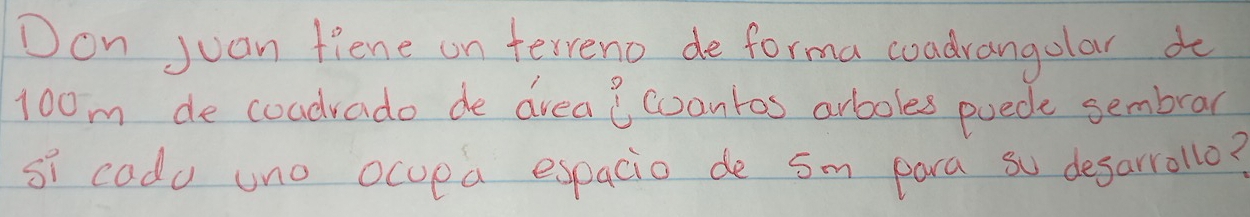 Don Juan tiene un terreno de forma cuadrangular de
100m de cuadrado de área ¿ cuantos arboles puede sembrar
si cada uno ocupa espacio de 5m para su desarrollo?